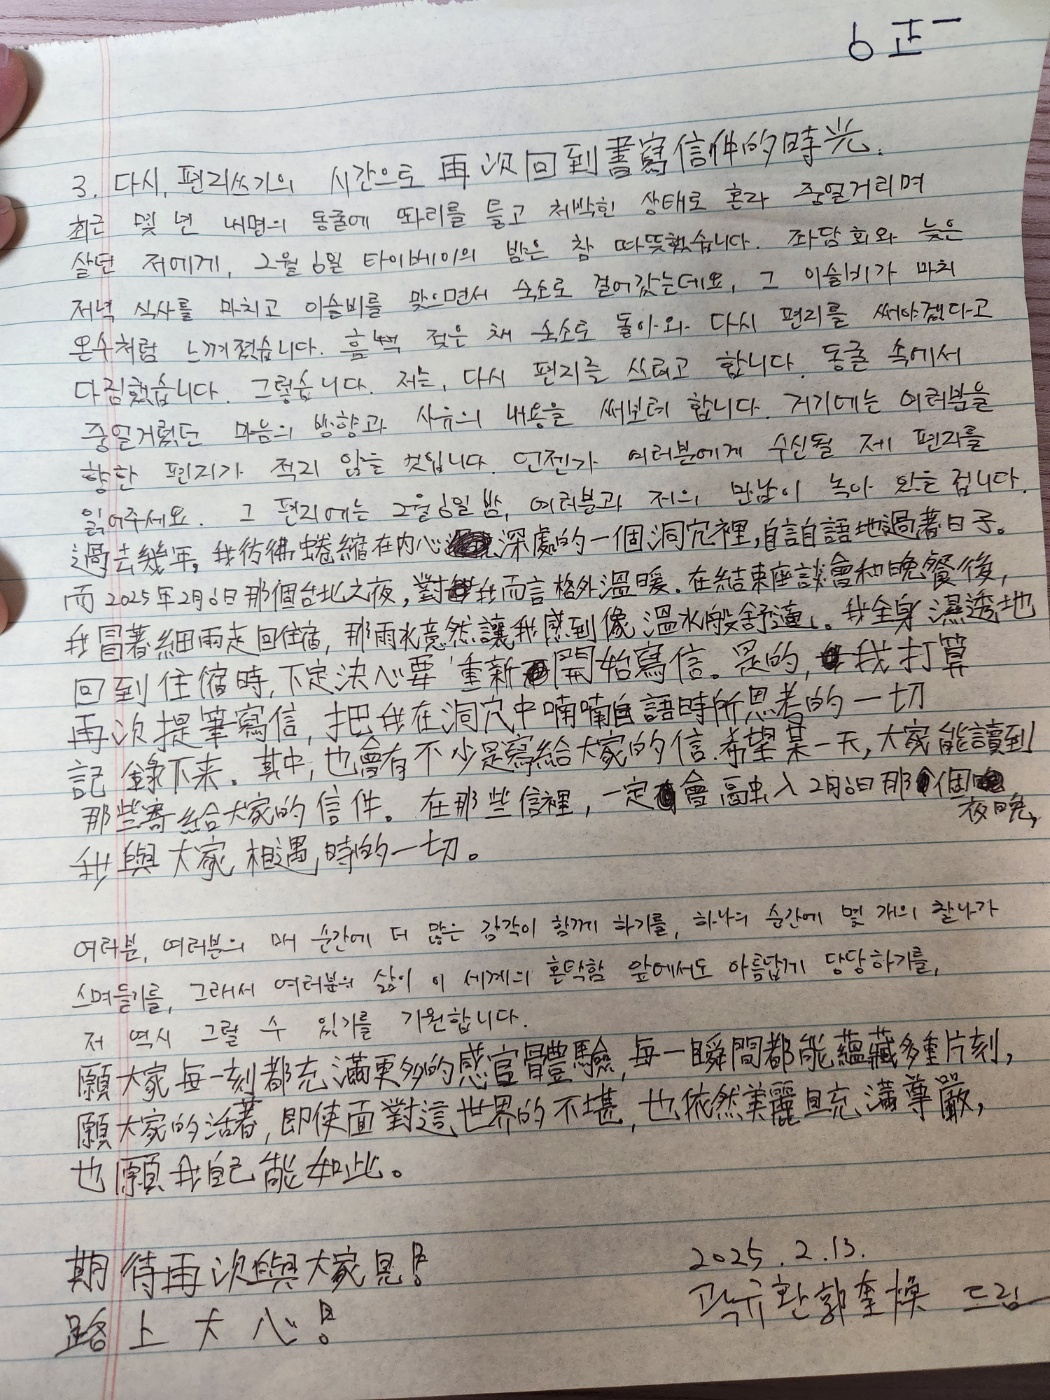 6 正一
3. 다시, 편지쓰기의 시간으로 再次回到書寫信件的時光.
최근 몇 년 내면의 동굴에 똬리를 틀고 처박힌 상태로 혼자 중얼거리며
살던 저에게, 2월 6일 타이베이의 밤은 참 따뜻했습니다. 좌담회와 늦은
저녁 식사를 마치고 이슬비를 맞으면서 숙소로 걸어갔는데요, 그 이슬비가 마치
온수처럼 느껴졌습니다. 흠뻑 젖은 채 숙소로 돌아와 다시 편지를 써야겠다고
다짐했습니다. 그렇습니다. 저는, 다시 편지를 쓰려고 합니다. 동굴 속에서
중얼거렸던 마음의 방향과 사유의 내용을 써보려 합니다. 거기에는 여러분을
향한 편지가 적지 않을 것입니다. 언젠가 여러분에게 수신될 제 편지를
읽어주세요. 그 편지에는 2월 6일 밤, 여러분과 저의 만남이 녹아 있을 겁니다.
過去幾年, 我彷彿蜷縮在內心深處的一個洞穴裡, 自言自語地過著日子。
而 2025年2月6日 那個台北之夜, 對我而言格外溫暖. 在結束座談會和晚餐後,
我冒著細雨走回住宿, 那雨水竟然讓我感到像溫水般舒適。我全身濕透地
回到住宿時, 下定決心要 重新開始寫信。是的, 我打算
再次提筆寫信, 把我在洞穴中喃喃自語時所思考的一切
記錄下來。其中, 也會有不少是寫給大家的信. 希望某一天, 大家能讀到
那些寄給大家的信件。在那些信裡, 一定會融入 2月6日 那個
夜晚,
我與大家相遇時的一切。
여러분, 여러분의 매 순간에 더 많은 감각이 함께 하기를, 하나의 순간에 몇 개의 찰나가
스며들기를, 그래서 여러분의 삶이 이 세계의 혼탁함 앞에서도 아름답게 당당하기를,
저 역시 그럴 수 있기를 기원합니다.
願大家每一刻都充滿更多的感官體驗, 每一瞬間都能蘊藏多重片刻,
願大家的活著, 即使面對這世界的不堪, 也依然美麗且充滿尊嚴,
也願我自己能如此。
期待再次與大家見!
路上大心!
2025. 2. 13.
곽규환 郭奎煥 드림